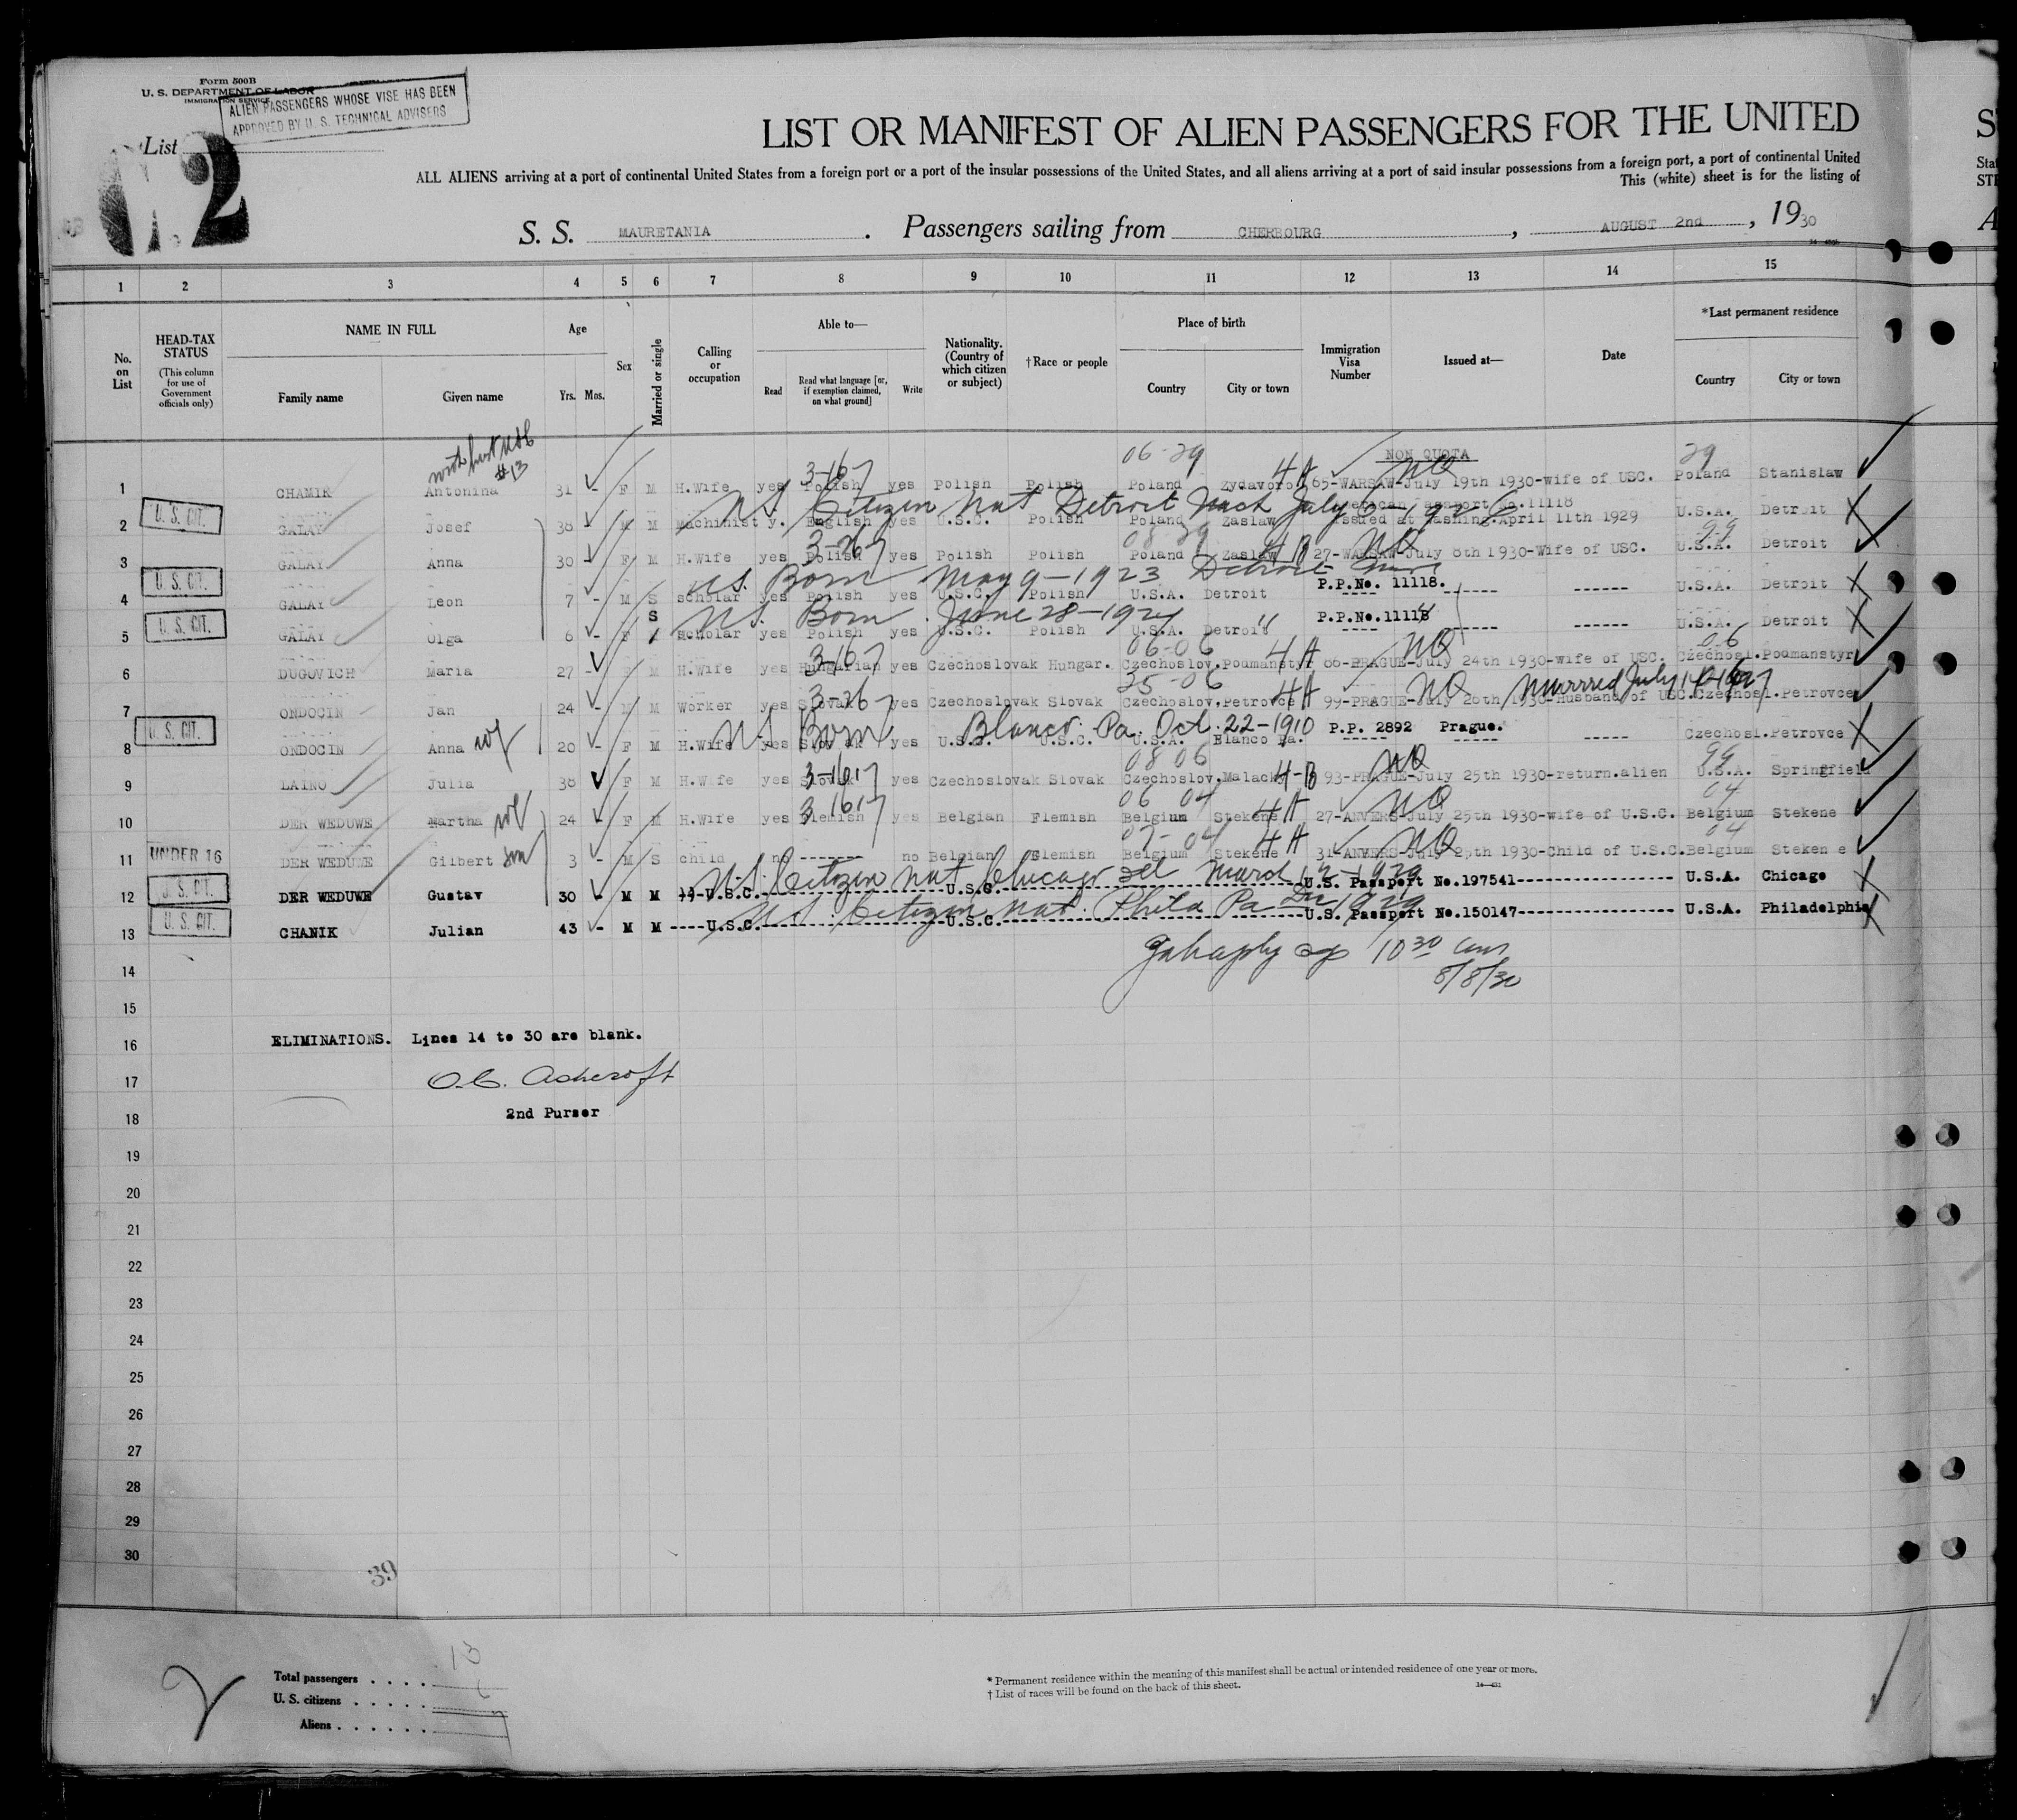 Form 500B
U. S. DEPARTMENT OF LABOR
IMMIGRATION SERVICE
ALIEN PASSENGERS WHOSE VISE HAS BEEN
APPROVED BY U. S. TECHNICAL ADVISERS
List
2
LIST OR MANIFEST OF ALIEN PASSENGERS FOR THE UNITED
ALL ALIENS arriving at a port of continental United States from a foreign port or a port of the insular possessions of the United States, and all aliens arriving at a port of said insular possessions from a foreign port, a port of continental United
This (white) sheet is for the listing of
S. S. MAURETANIA . Passengers sailing from CHERBOURG , AUGUST 2nd , 1930
1 2 3 4 5 6 7 8 9 10 11 12 13 14 15
No. on List
HEAD-TAX STATUS (This column for use of Government officials only)
NAME IN FULL Family name Given name
Age Yrs. Mos.
Sex
Married or single
Calling or occupation
Able to— Read Read what language [or, if exemption claimed, on what ground] Write
Nationality. (Country of which citizen or subject)
†Race or people
Place of birth Country City or town
Immigration Visa Number
Issued at—
Date
*Last permanent residence Country City or town
with #13
06-29 NON QUOTA 29
3-167 4A NQ
1 CHAMIK Antonina 31 - F M H.Wife yes Polish yes Polish Polish Poland Zydavorol 65-WARSAW-July 19th 1930-wife of USC. Poland Stanislaw
U.S. Citizen Nat Detroit Mich July 6-1926
American Passport No.11118
U. S. CIT. 2 GALAY Josef 38 - M M Machinist y. English yes U.S.C. Polish Poland Zaslaw Issued at Washing.April 11th 1929 U.S.A. Detroit
3-267 08-29 4B NQ 99
3 GALAY Anna 30 - F M H.Wife yes Polish yes Polish Polish Poland Zaslaw 27-WARSAW-July 8th 1930-Wife of USC. U.S.A. Detroit
U.S. Born May 9-1923 Detroit
U. S. CIT. 4 GALAY Leon 7 - M S scholar yes Polish yes U.S.C. Polish U.S.A. Detroit P.P.No. 11118. ------ ------ U.S.A. Detroit
U.S. Born June 28-1924 "
U. S. CIT. 5 GALAY Olga 6 - F S scholar yes Polish yes U.S.C. Polish U.S.A. Detroit P.P.No.11118 ------ ------ U.S.A. Detroit
3-167 06-06 4A NQ 06
6 DUGOVICH Maria 27 - F M H.Wife yes Hungarian yes Czechoslovak Hungar. Czechoslov.Podmanstyr 86-PRAGUE-July 24th 1930-wife of USC. Czechosl.Podmanstyr
3-267 25-06 4A NQ Married July
7 ONDOCIN Jan 24 - M M Worker yes Slovak yes Czechoslovak Slovak Czechoslov.Petrovce 99-PRAGUE-July 26th 1930-Husband of USC.Czechosl.Petrovce
U.S. Born Blanco. Pa. Oct. 22-1910
U. S. CIT. 8 ONDOCIN Anna wf 20 - F M H.Wife yes Slovak yes U.S.C. U.S.C. U.S.A. Blanco Pa. P.P. 2892 Prague. ----- Czechosl.Petrovce
3-1617 08 06 4-B NQ 99
9 LAINO Julia 38 F M H.Wife yes Slovak yes Czechoslovak Slovak Czechoslov.Malacko 93-PRAGUE-July 25th 1930-return.alien U.S.A. Springfield
3 1617 06 04 4A NQ 04
10 DER WEDUWE Martha wf 24 - F M H.Wife yes Flemish yes Belgian Flemish Belgium Stekene 27-ANVERS-July 25th 1930-wife of U.S.C. Belgium Stekene
07- 04 4A NQ 04
UNDER 16 11 DER WEDUWE Gilbert son 3 - M S child no ------- no Belgian Flemish Belgium Stekene 31-ANVERS-July 25th 1930-Child of U.S.C.Belgium Stekene
U.S. Citizen Nat Chicago Ill March 12-1929
U. S. CIT. 12 DER WEDUWE Gustav 30 - M M U.S.C. U.S.C. U.S. Passport No.197541 U.S.A. Chicago
U.S. Citizen Nat. Phila Pa 1929
U. S. CIT. 13 CHANIK Julian 43 - M M ----U.S.C. U.S.C. U.S. Passport No.150147 U.S.A. Philadelphia
14
10 30 am
8/8/30
15
16 ELIMINATIONS. Lines 14 to 30 are blank.
17 O.C. Ashcroft
18 2nd Purser
19
20
21
22
23
24
25
26
27
28
29
30
39
Total passengers . . . . 13
U. S. citizens . . . . .
Aliens . . . . . .
* Permanent residence within the meaning of this manifest shall be actual or intended residence of one year or more.
† List of races will be found on the back of this sheet.